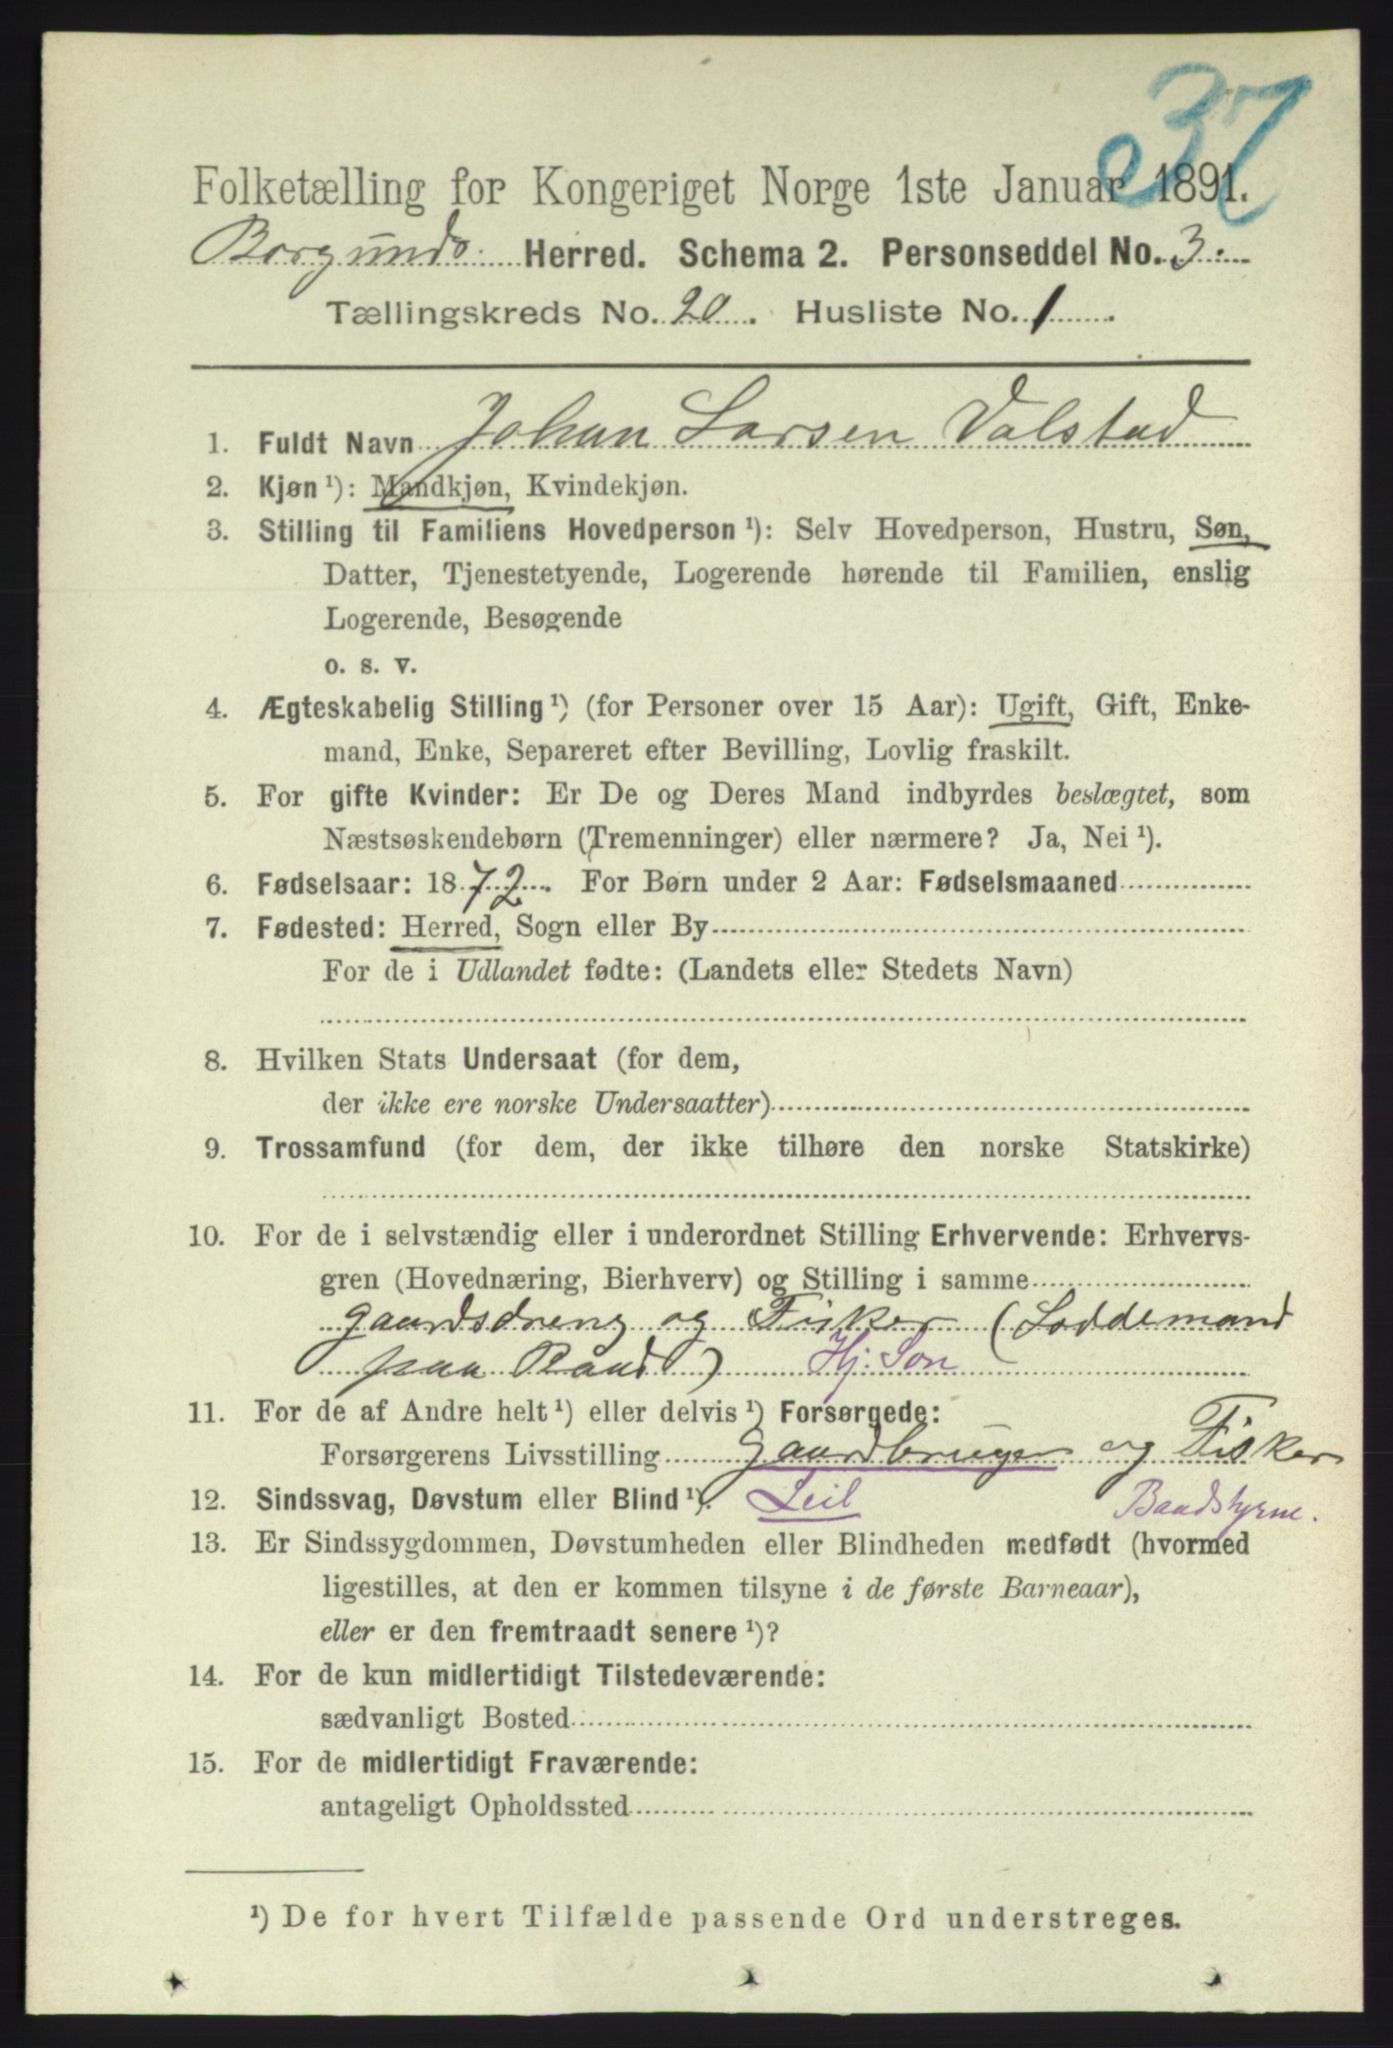 37
Folketælling for Kongeriget Norge 1ste Januar 1891.
Borgunds Herred. Schema 2. Personseddel No. 3.
Tællingskreds No. 20. Husliste No. 1.
1. Fuldt Navn Johan Larsen Valstad
2. Kjøn ¹): Mandkjøn, Kvindekjøn.
3. Stilling til Familiens Hovedperson ¹): Selv Hovedperson, Hustru, Søn,
Datter, Tjenestetyende, Logerende hørende til Familien, enslig
Logerende, Besøgende
o. s. v.
4. Ægteskabelig Stilling ¹) (for Personer over 15 Aar): Ugift, Gift, Enke-
mand, Enke, Separeret efter Bevilling, Lovlig fraskilt.
5. For gifte Kvinder: Er De og Deres Mand indbyrdes beslægtet, som
Næstsøskendebørn (Tremenninger) eller nærmere? Ja, Nei ¹).
6. Fødselsaar: 1872. For Børn under 2 Aar: Fødselsmaaned
7. Fødested: Herred, Sogn eller By
For de i Udlandet fødte: (Landets eller Stedets Navn)
8. Hvilken Stats Undersaat (for dem,
der ikke ere norske Undersaatter)
9. Trossamfund (for dem, der ikke tilhøre den norske Statskirke)
10. For de i selvstændig eller i underordnet Stilling Erhvervende: Erhvervs-
gren (Hovednæring, Bierhverv) og Stilling i samme
gaardsdreng og Fisker (Loddemand
paa Baad) Hj. Søn
11. For de af Andre helt ¹) eller delvis ¹) Forsørgede:
Forsørgerens Livsstilling Gaardbruger og Fisker
12. Sindssvag, Døvstum eller Blind ¹). Leil Baadstyrne.
13. Er Sindssygdommen, Døvstumheden eller Blindheden medfødt (hvormed
ligestilles, at den er kommen tilsyne i de første Barneaar),
eller er den fremtraadt senere ¹)?
14. For de kun midlertidigt Tilstedeværende:
sædvanligt Bosted
15. For de midlertidigt Fraværende:
antageligt Opholdssted
¹) De for hvert Tilfælde passende Ord understreges.